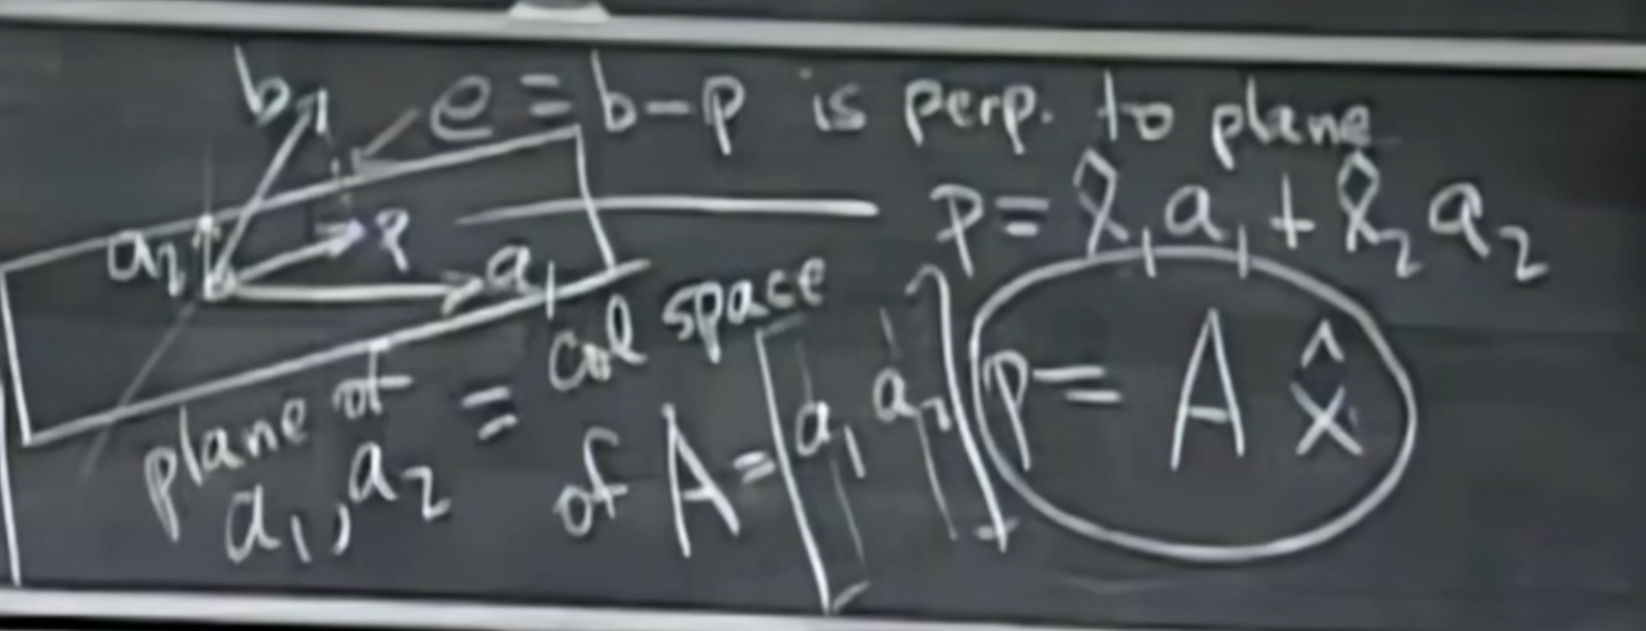 b e = b - p is perp. to plane
p = x̂₁a₁ + x̂₂a₂
a₂ p a₁
plane of a₁, a₂ = col space of A = [a₁ a₂]
p = A x̂